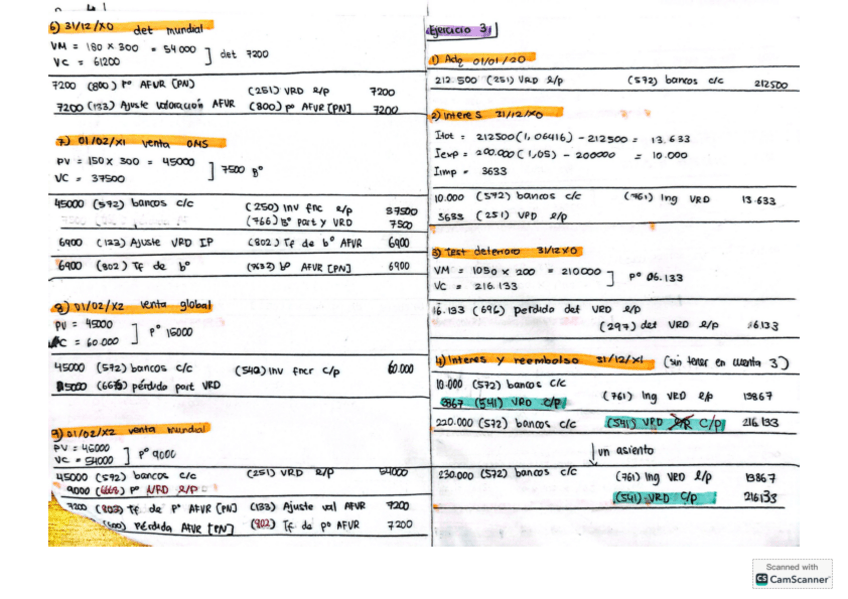 6) 31/12/X0 det mundial
VM = 180 x 300 = 54000
VC = 61200
] det 7200
7200 (800) pº AFVR [PN]
(251) VRD l/p 7200
7200 (133) Ajuste valoración AFVR (800) pº AFVR [PN] 7200
7) 01/02/X1 venta OMS
PV = 150 x 300 = 45000
VC = 37500
] 7500 Bº
45000 (572) bancos c/c (250) inv fnc l/p 37500
(766) Bº part y VRD 7500
6900 (133) Ajuste VRD IP (802) Tf de bº AFVR 6900
6900 (802) Tf de bº AFVR [PN] 6900
8) 01/02/X2 venta global
PV = 45000
VC = 60.000
] Pº 15000
45000 (572) bancos c/c (540) inv fncr c/p 60.000
15000 (666) pérdida part VRD
9) 01/02/X2 venta mundial
PV = 45000
VC = 54000
] Pº 9000
45000 (572) bancos c/c (251) VRD l/p 54000
9000 (666) pº VRD l/p
7200 (902) Tf de Pº AFVR [PN] (133) Ajuste val AFVR 7200
pérdida AFVR [PN] (902) Tf de pº AFVR 7200
Ejercicio 3
1) Adq 01/01/20
212.500 (251) VRD l/p (572) bancos c/c 212500
2) Interes 31/12/X0
Itot = 212500(1,06416) - 212500 = 13.633
Iexp = 200.000(1,05) - 200000 = 10.000
Iimp = 3633
10.000 (572) bancos c/c (761) Ing VRD 13.633
3633 (251) VRD l/p
3) Test deterioro 31/12X0
VM = 1050 x 200 = 210000
VC = 216.133
] Pº 06.133
16.133 (696) perdida det VRD l/p
(297) det VRD l/p 6133
4) Interes y reembolso 31/12/X1 (sin tener en cuenta 3)
10.000 (572) bancos c/c
(761) Ing VRD l/p 13867
3867 (541) VRD c/p
220.000 (572) bancos c/c (541) VRD C/P 216.133
↓ un asiento
230.000 (572) bancos c/c (761) Ing VRD l/p 13867
(541) VRD c/p 216133
Scanned with
CS CamScanner